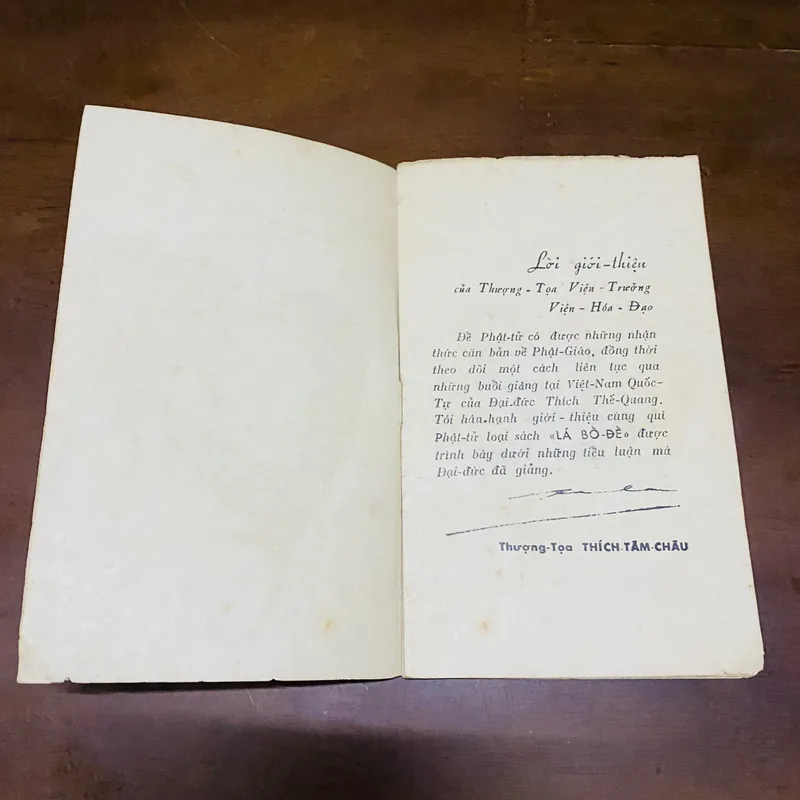 Lời giới-thiệu
của Thượng-Tọa Viện-Trưởng
Viện-Hóa-Đạo
Để Phật-tử có được những nhận
thức căn bản về Phật-Giáo, đồng thời
theo dõi một cách liên tục qua
những buổi giảng tại Việt-Nam Quốc-
Tự của Đại-đức Thích Thế-Quang.
Tôi hân-hạnh giới-thiệu cùng quí
Phật-tử loại sách «LÁ BỒ-ĐỀ» được
trình bày dưới những tiểu luận mà
Đại-đức đã giảng.
Thượng-Tọa THÍCH-TÂM-CHÂU